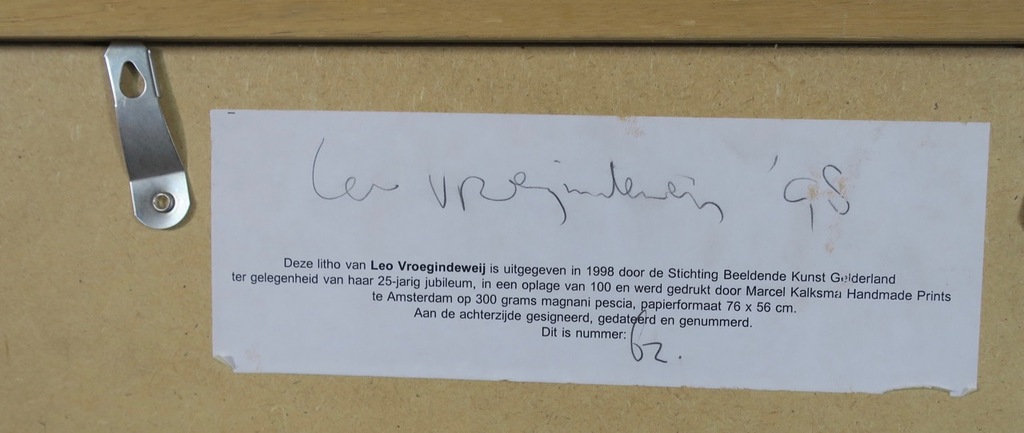 Leo Vroegindeweij '98
Deze litho van Leo Vroegindeweij is uitgegeven in 1998 door de Stichting Beeldende Kunst Gelderland
ter gelegenheid van haar 25-jarig jubileum, in een oplage van 100 en werd gedrukt door Marcel Kalksma Handmade Prints
te Amsterdam op 300 grams magnani pescia, papierformaat 76 x 56 cm.
Aan de achterzijde gesigneerd, gedateerd en genummerd.
Dit is nummer: 62.